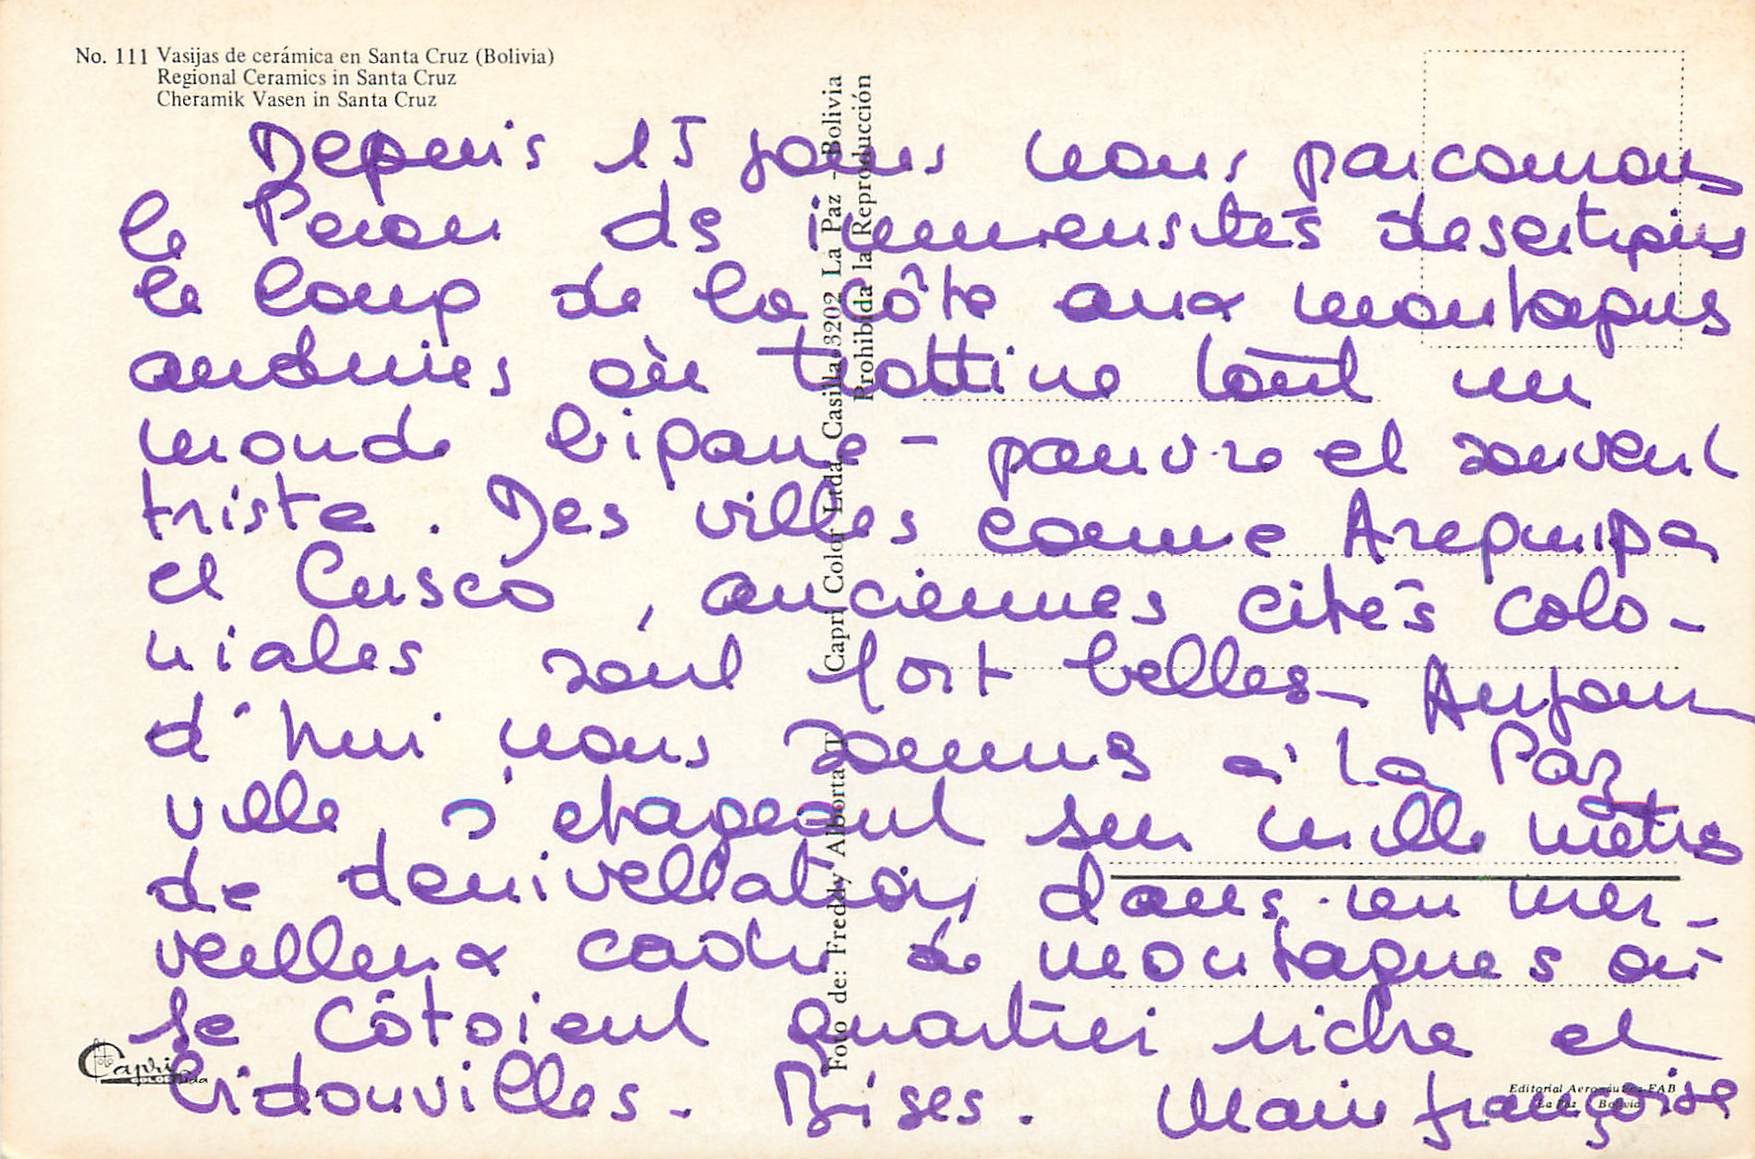 No. 111 Vasijas de cerámica en Santa Cruz (Bolivia)
Regional Ceramics in Santa Cruz
Cheramik Vasen in Santa Cruz
Depuis 15 jours nous parcourons
le Perou des immensités desertiques
le long de la côte aux montagnes
andines où trottine tout un
monde bigarré - pauvre et souvent
triste. Des villes comme Arequipa
et Cusco, anciennes cités colo-
niales sont fort belles - Aujour
d'hui nous sommes à La Paz
ville s'étageant sur mille mètres
de denivellation dans un mer-
veilleux cadre de montagnes où
se côtoient quartier riche et
bidonvilles. Bises. Marie françoise
Foto de: Freddy Alborta T. Capri Color Ltda. Casilla 3202 La Paz - Bolivia
Prohibida la Reproducción
Capri
Editorial Aeronáutica FAB
La Paz - Bolivia